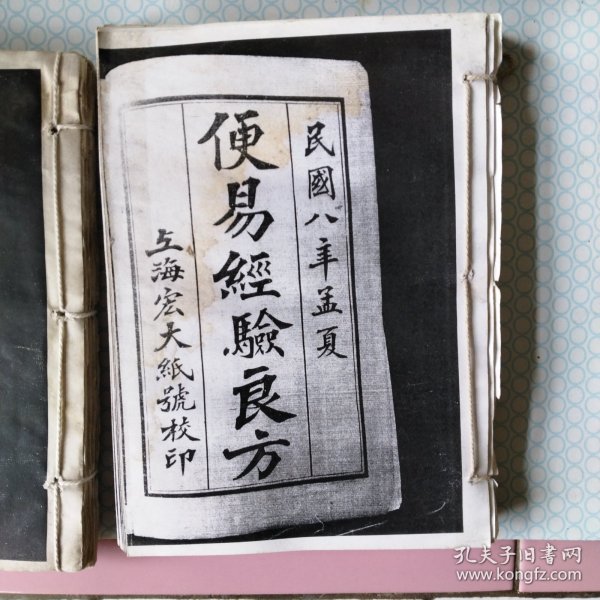 民國八年孟夏
便易經驗良方
上海宏大紙號校印
孔夫子旧书网
www.kongfz.com